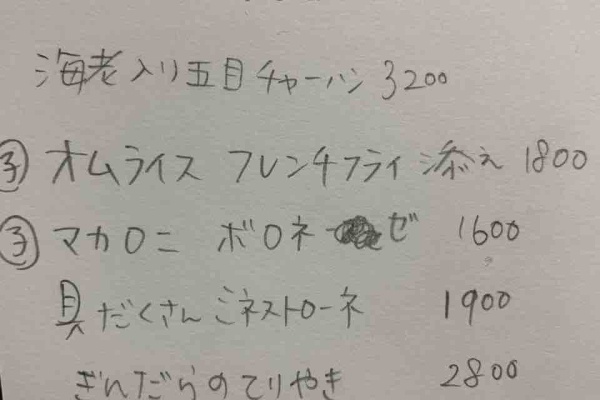 海老入り五目チャーハン 3200
子 オムライス フレンチフライ添え 1800
子 マカロニ ボロネーゼ 1600
具だくさんミネストローネ 1900
ぎんだらのてりやき 2800